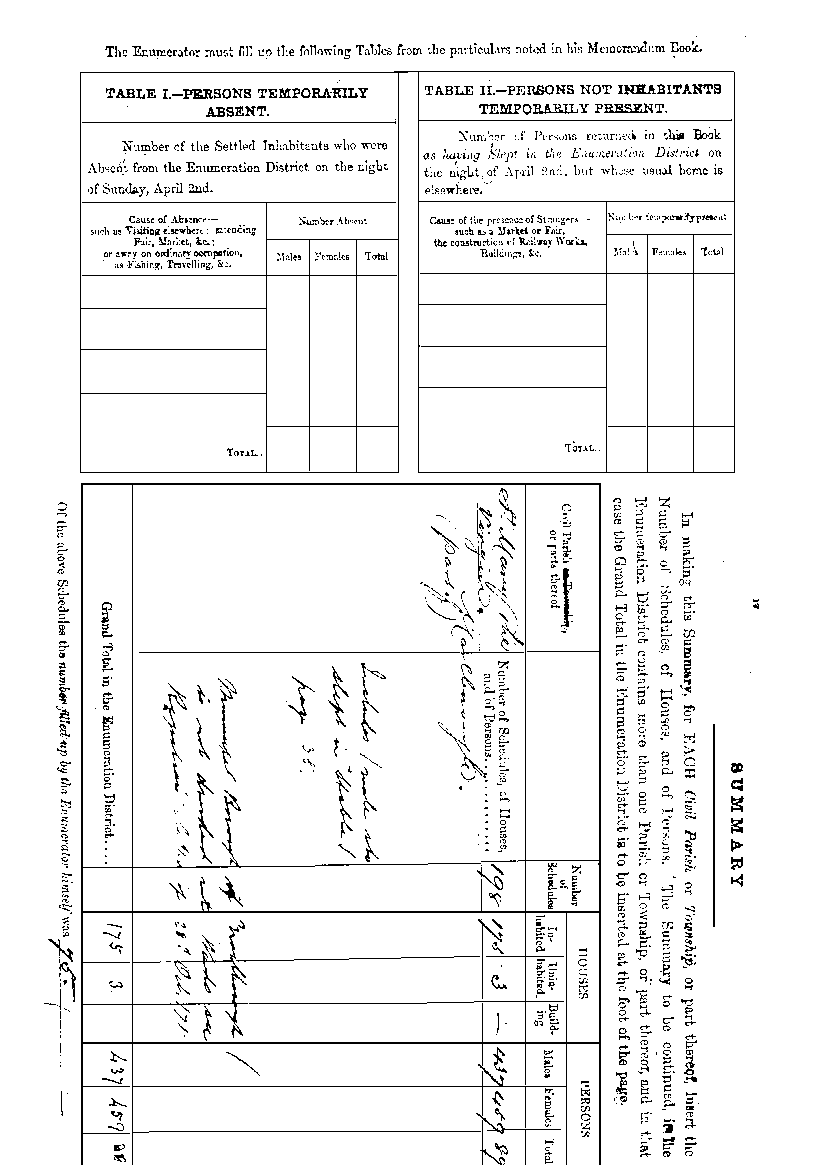 The Enumerator must fill up the following Tables from the particulars noted in his Memorandum Book.
TABLE I.—PERSONS TEMPORARILY
ABSENT.
Number of the Settled Inhabitants who were
Absent from the Enumeration District on the night
of Sunday, April 2nd.
Cause of Absence—
such as Visiting elsewhere; attending
Fair, Market, &c.;
or away on ordinary occupation,
as Fishing, Travelling, &c.
Number Absent
Males Females Total
TOTAL..
TABLE II.—PERSONS NOT INHABITANTS
TEMPORARILY PRESENT.
Number of Persons returned in this Book
as having Slept in the Enumeration District on
the night of April 2nd, but whose usual home is
elsewhere.
Cause of the presence of Strangers—
such as a Market or Fair,
the construction of Railway Works,
Buildings, &c.
Number temporarily present
Males Females Total
TOTAL..
17
SUMMARY
In making this Summary, for EACH Civil Parish or Township, or part thereof, insert the
Number of Schedules, of Houses, and of Persons. The Summary to be continued, if the
Enumeration District contains more than one Parish or Township, or part thereof, and in that
case the Grand Total in the Enumeration District is to be inserted at the foot of the page.
Civil Parish or Township,
or parts thereof
Number
of
Schedules
HOUSES
In-
habited
Unin-
habited
Build-
ing
PERSONS
Males Females Total
St Mary the
Virgin.
(part of
Number of Schedules, of Houses,
and of Persons........
198 175 3 — 437 459
Includes 1 male who
slept in Stable
page 35.
Municipal Borough of
is not
Grand Total in the Enumeration District....
175 3 437 459
Of the above Schedules the number filled up by the Enumerator himself was 75.